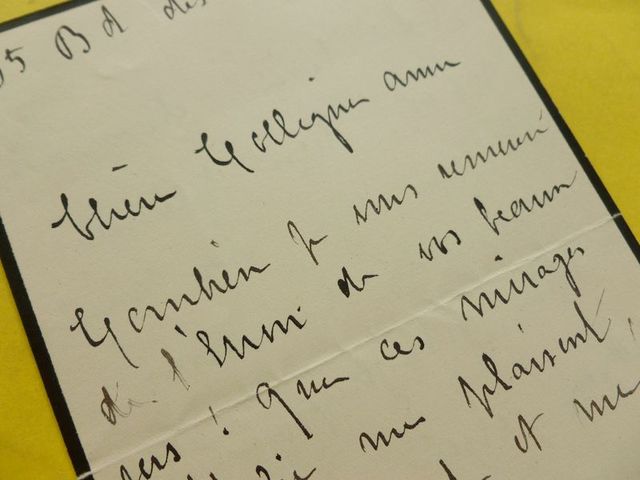 55 Bd des
Chère Collègue amie
Combien je vous remercie
de l'envoi de vos beaux
vers ! Que ces mirages
me plaisent,
et me